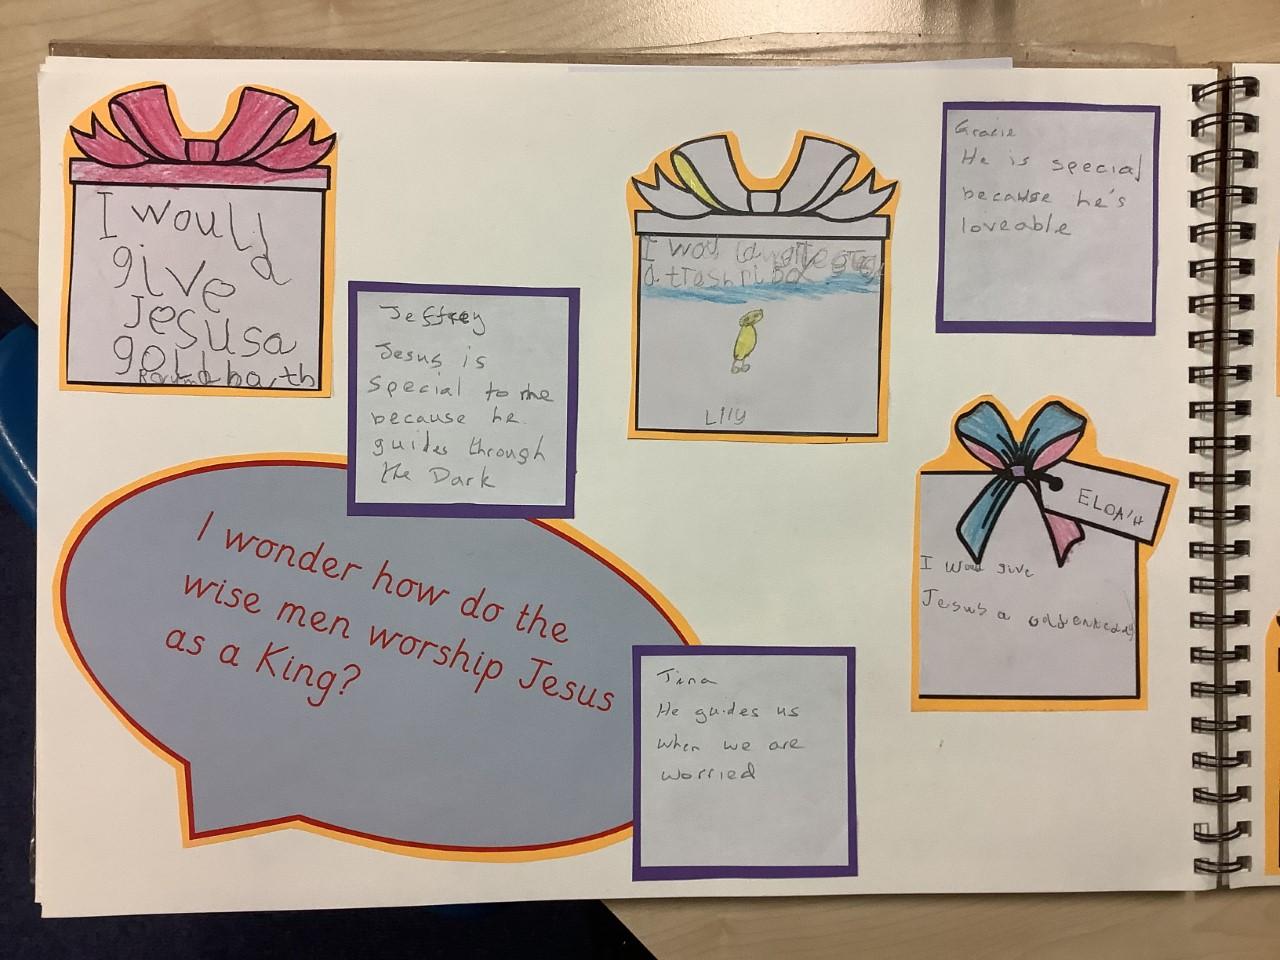 I would
give
Jesus a
gold bath
Jeffrey
Jesus is
special to me
because he
guides through
the Dark
I wonder how do the
wise men worship Jesus
as a King?
I
a
Lilly
Gracie
He is special
because he's
loveable
ELOA'H
I Woul give
Jesus a
Tina
He guides us
when we are
worried